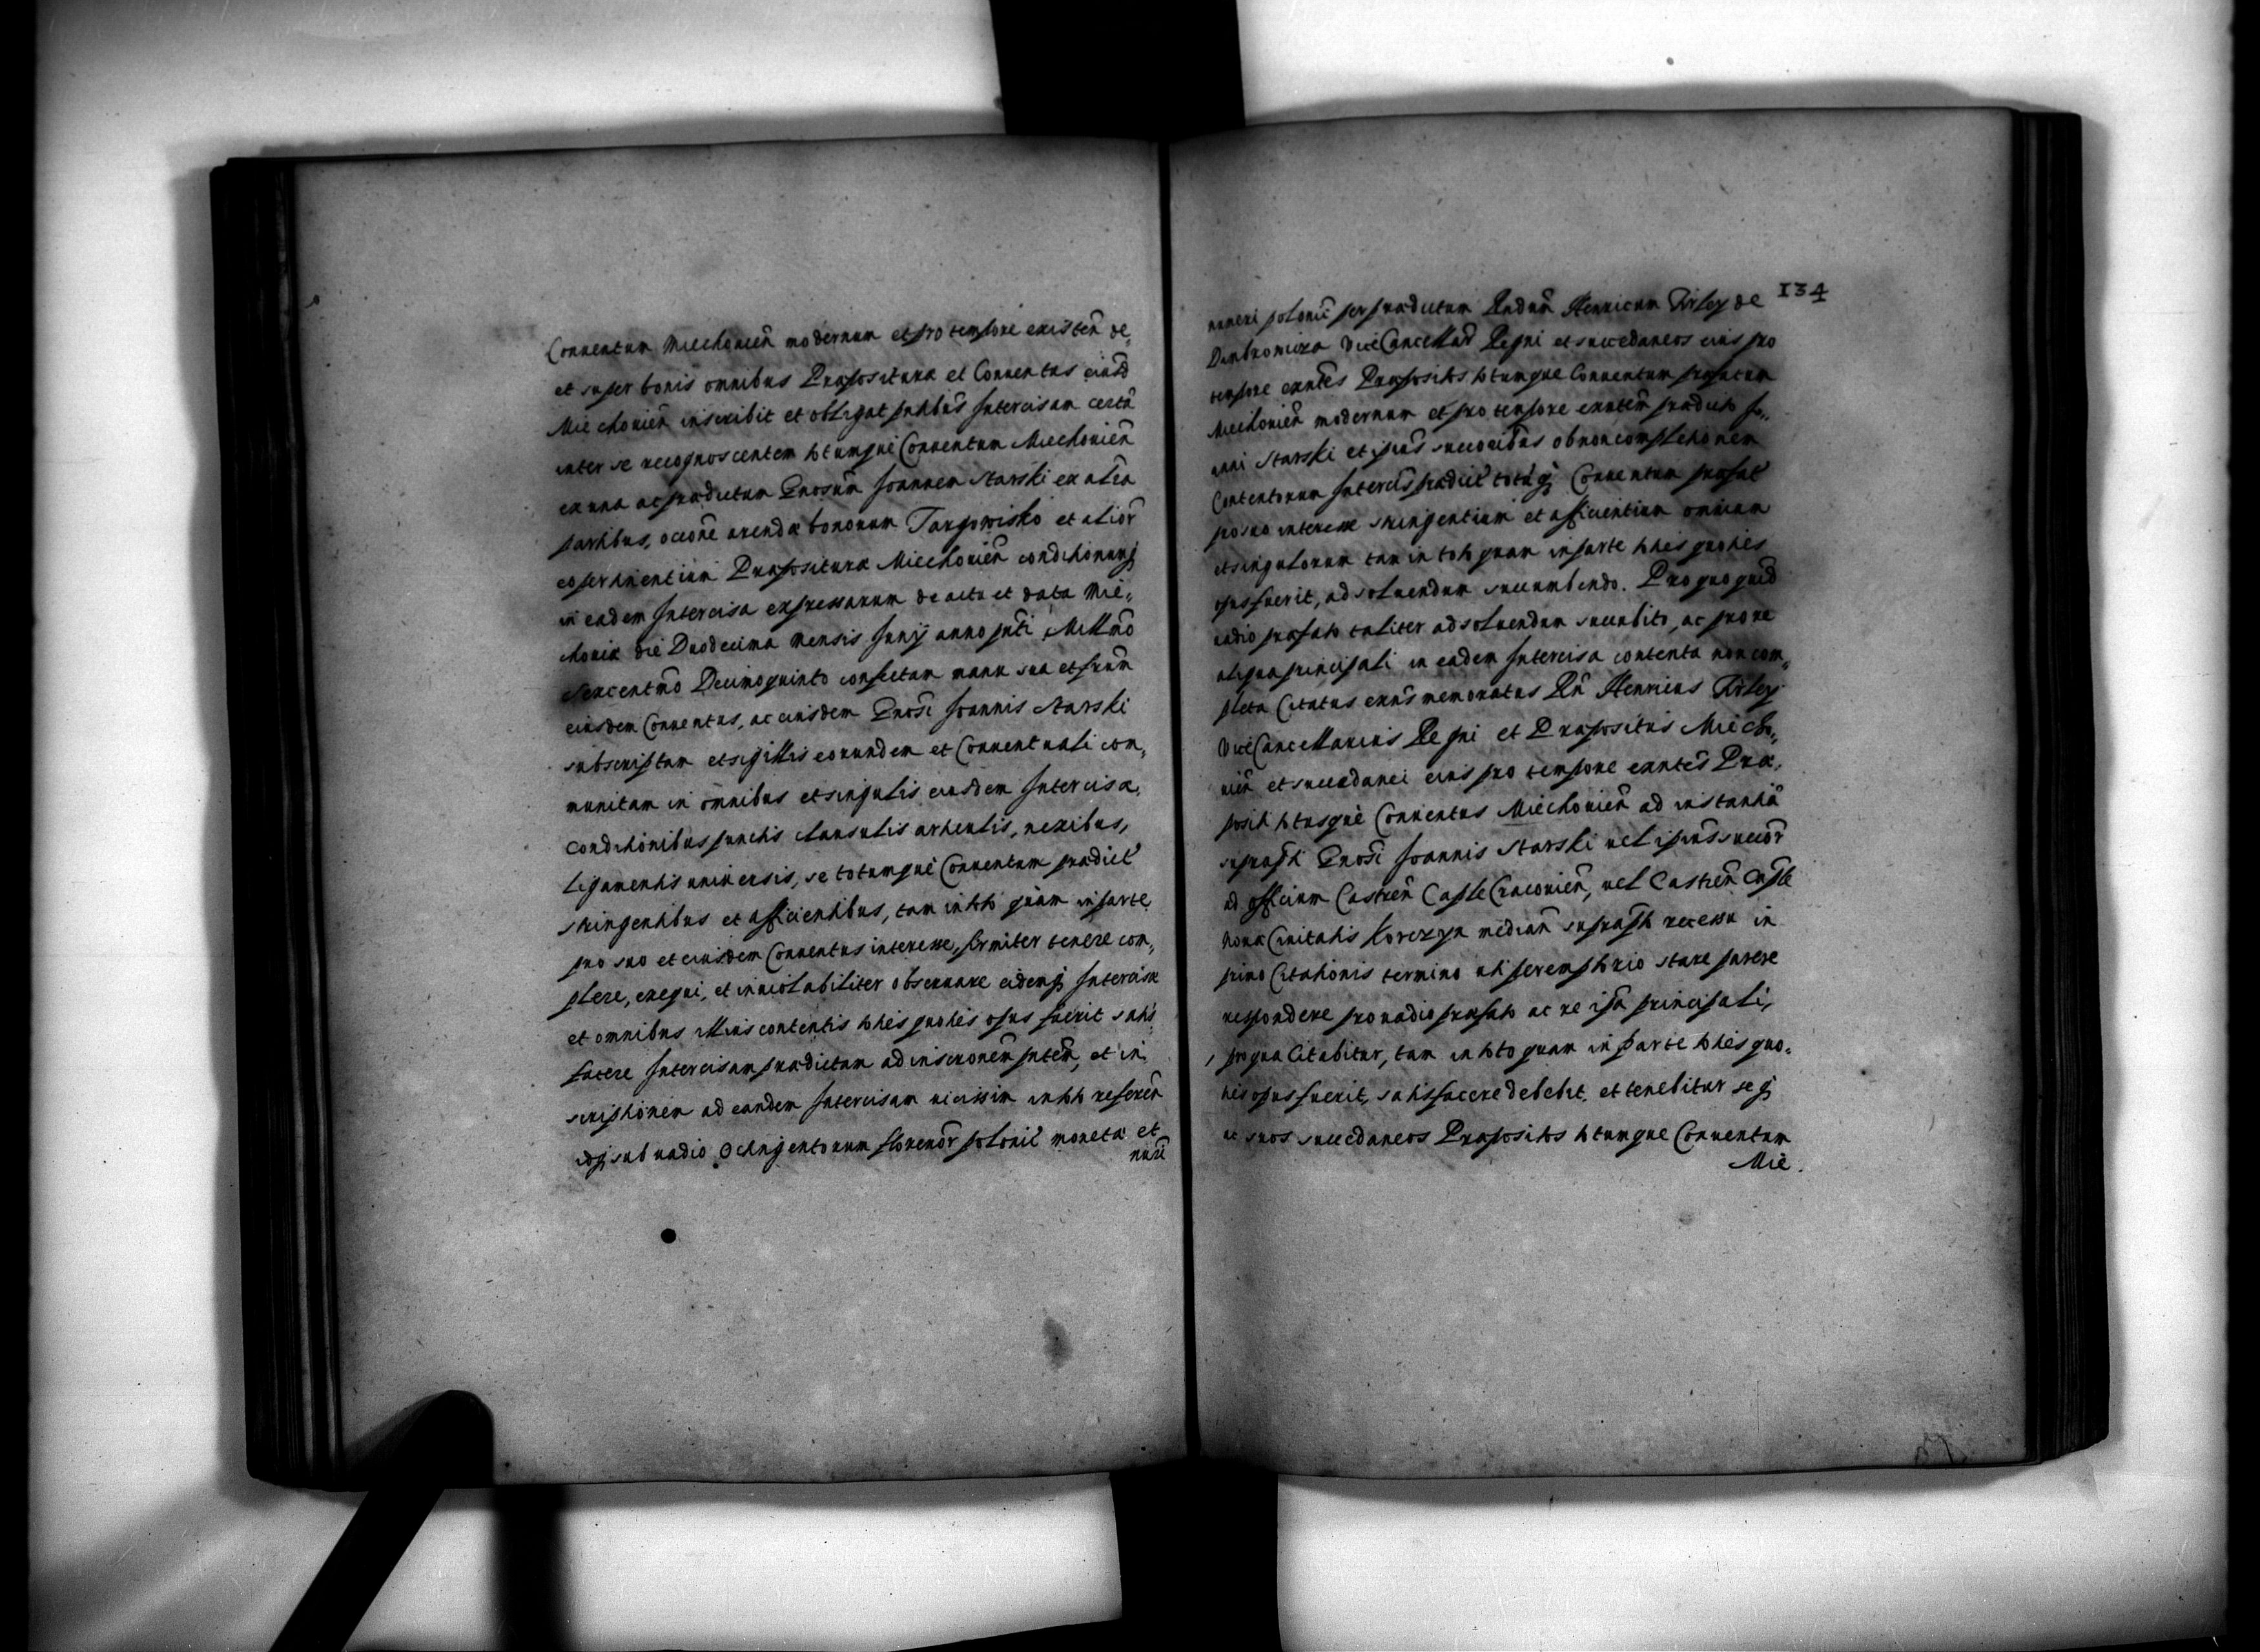 Conuentum Miechouien̄ modernum et pro tempore existen̄ de„
et super bonis omnibus Præpositura et Conuentus eiusd̄
Miechouien̄ inscribit et obligat pn̄tibus Intercisam certā
inter se recognoscentem totumque Conuentum Miechouien̄
ex una ac prædictum Gnosum Joannem Starski ex altera
partibus, oc̄one arendæ bonorum Targowisko et alior̄
eo pertinentium Præpositura Miechouien̄ conditionumq̄
in eadem Intercisa expressarum de actu et data Mie„
chouiæ die Duodecima Mensis Junij anno pn̄ti Mill̄mo
Sexcentmo Decimoquinto confectam manu sua et frūm
eiusdem Conuentus, ac eiusdem Gnosi Joannis Starski
subscriptam et sigillis eorundem et Conuentuali com„
munitam in omnibus et singulis eiusdem Intercisæ,
conditionibus punctis clausulis articulis, nexibus,
ligamentis uniuersis, se totumque Conuentum prædict̄
stringentibus et afficientibus, tam in toto quàm in parte
pro suo et eiusdem Conuentus interesse, firmiter tenere com„
plere, exequi, et inuiolabiliter obseruare eidemq̄ Intercisæ
et omnibus illius contentis toties quoties opus fuerit satis
facere Intercisam prædictam ad inscr̄onem pn̄tem, et in„
scriptionem ad eandem Intercisam uicissim in toto referen̄
idq̄ sub uadio Octingentorum florenor̄ polonic̄ moneta et
nūri
134
numeri polonic̄ per prædictum Rn̄dum Henricum Firley de
Dambrowica ViceCancellar̄ Regni et succedaneos eius pro
tempore exn̄tes Præpositos totumque Conuentum præfatum
Miechouien̄ modernum et pro tempore exn̄tem prædicto Jo„
anni Starski et ipsius succoribus ob non completionem
Contentorum Intercis̄ prædict̄ totūq̄ Conuentum præfat̄
pro suo interesse stringentium et afficientium omnium
et singulorum tam in toto quam in parte toties quoties
opus fuerit, ad soluendum succumbendo. Pro quo quid̄
uadio præfato taliter ad soluendum succubito, ac pro re
aliqua principali in eadem Intercisa contenta non com„
pleta Citatus exn̄s memoratus Rn̄ Henricus Firley
ViceCancellarius Regni et Præpositus Miecho„
uien̄ et succedanei eius pro tempore exn̄tes Præ„
positi totusque Conuentus Miechouien̄ ad instantiā
supra pti Gnosi Joannis Starski uel ipsius succor̄
ad officium Castren̄ Cap̄le Cracouien̄, uel Castren̄ Cap̄le
nouæ Ciuitatis Korczyn median̄ supra pto recessu in
primo Citationis termino uti peremptorio stare parere
respondere pro uadio præfato ac re ipsa principali,
pro qua Citabitur, tam in toto quam in parte toties quo„
ties opus fuerit, satisfacere debebit. et tenebitur seq̄
ac suos succedaneos Præpositos totumque Conuentum
Mie.